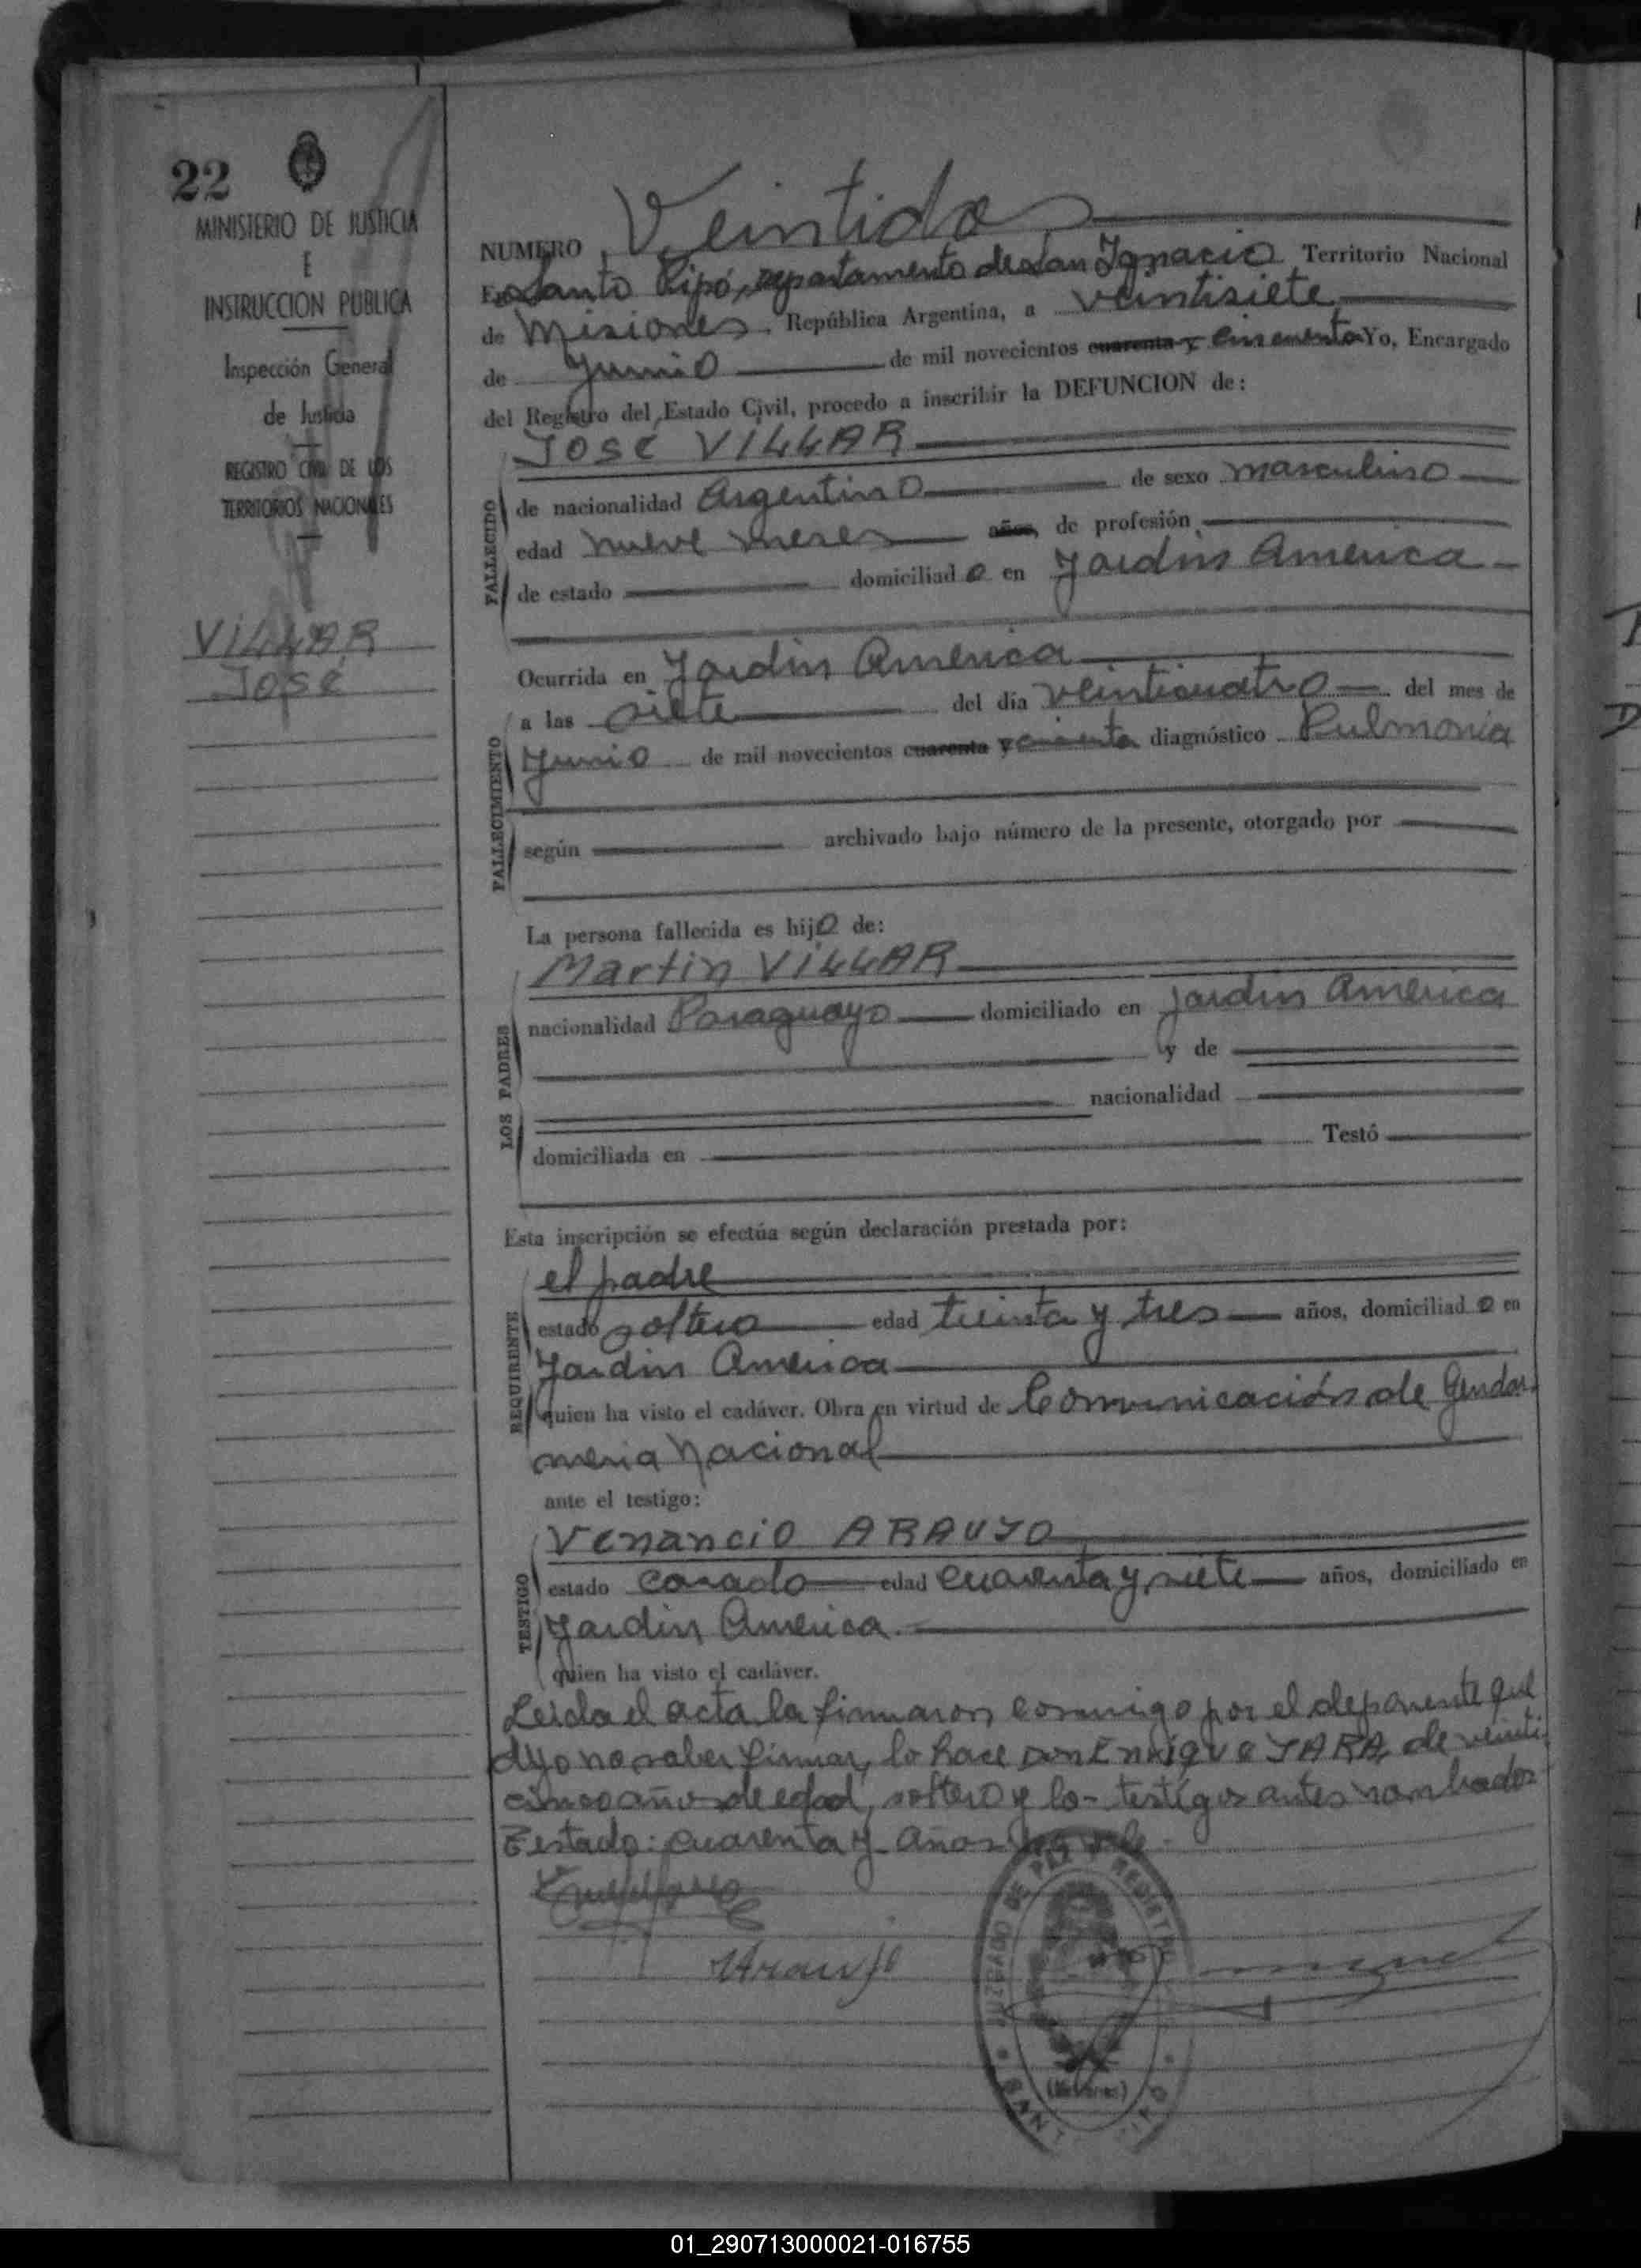 22
MINISTERIO DE JUSTICIA
E
INSTRUCCION PUBLICA
Inspección General
de Justicia
REGISTRO CIVIL DE LOS
TERRITORIOS NACIONALES
VILLAR
José
NUMERO Veintidos
En Santo Pipó, departamento de San Ignacio Territorio Nacional
de Misiones, República Argentina, a veintisiete
de Junio de mil novecientos cuarenta y cincuenta Yo, Encargado
del Registro del Estado Civil, procedo a inscribir la DEFUNCION de:
JOSÉ VILLAR
de nacionalidad Argentino de sexo masculino
edad nueve meses años, de profesión
de estado domiciliado en Jardin America
FALLECIDO
Ocurrida en Jardin America
a las siete del día veinticuatro del mes de
Junio de mil novecientos cuarenta y cincuenta diagnóstico Pulmonia
según archivado bajo número de la presente, otorgado por
FALLECIMIENTO
La persona fallecida es hijo de:
Martin VILLAR
nacionalidad Paraguayo domiciliado en Jardin America
y de
nacionalidad
domiciliada en Testó
LOS PADRES
Esta inscripción se efectúa según declaración prestada por:
el padre
estado soltero edad treinta y tres años, domiciliado en
Jardin America
quien ha visto el cadáver. Obra en virtud de Comunicación de Gendar
meria Nacional
REQUIRENTE
ante el testigo:
Venancio ARAUJO
estado casado edad cuarenta y siete años, domiciliado en
Jardin America.
TESTIGO
quien ha visto el cadáver.
Leida el acta la firmaron conmigo por el deponente que
dijo no saber firmar, lo hace Don Enrique JARA, de veinti
cinco años de edad, soltero y los testigos antes nombrados
Testado: cuarenta y años No vale.
Araujo
JUZGADO DE PAZ Y REGISTRO
(Misiones)
01_290713000021-016755